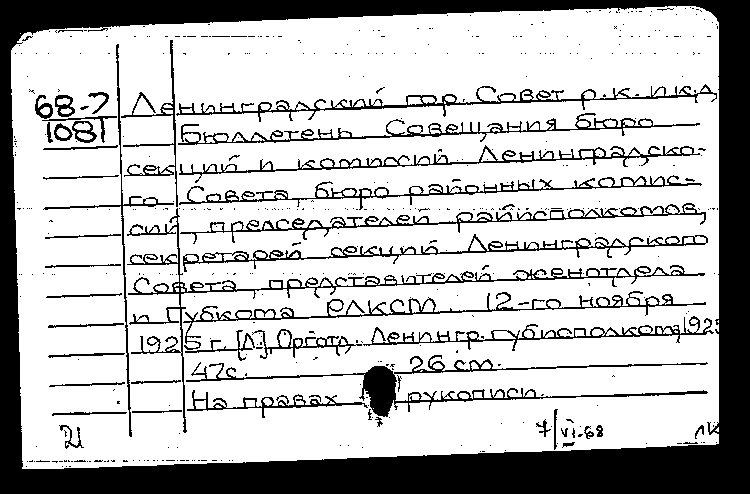 68-7 Ленинградский гор. Совет р.к. и к.д
1081 Бюллетень Совещания бюро
секций и комиссий Ленинградско-
го Совета, бюро районных комис-
сий, председателей райисполкомов,
секретарей секций Ленинградского
Совета, представителей женотдела
и Губкома РЛКСМ. 12-го ноября
1925 г. [Л.], Орготд. Ленингр. губисполкома, 1925
47с. 26 см.
На правах рукописи.
21 7/VI-68 ЛК